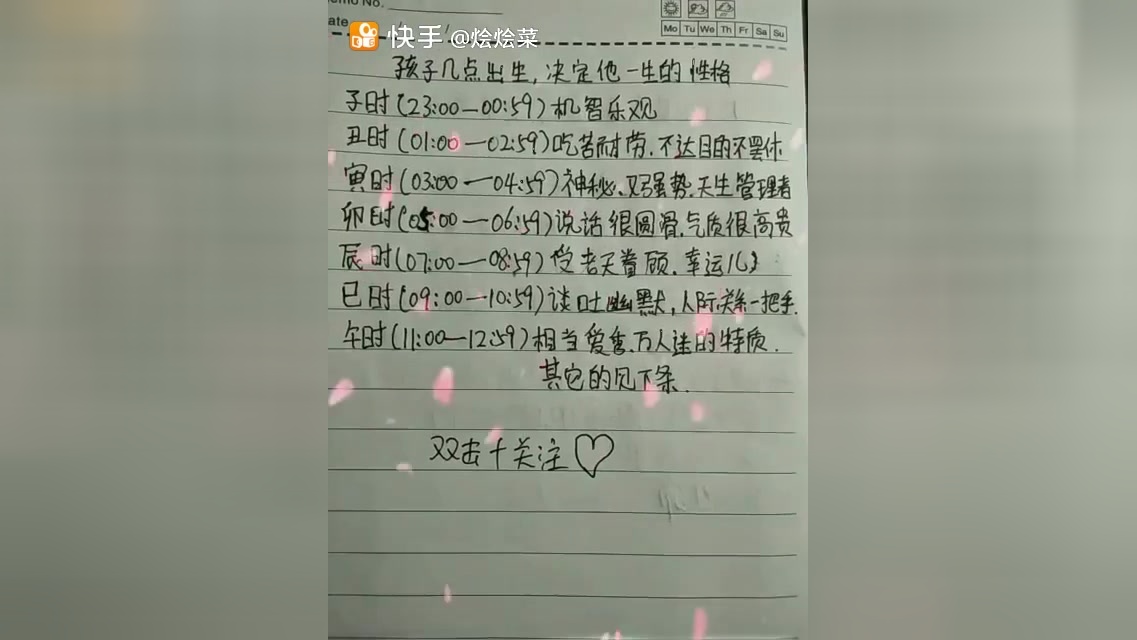 Memo No.
Date
Mo Tu We Th Fr Sa Su
快手 @烩烩菜
孩子几点出生,决定他一生的性格
子时(23:00—00:59)机智乐观
丑时(01:00—02:59)吃苦耐劳.不达目的不罢休
寅时(03:00—04:59)神秘、又强势.天生管理者
卯时(05:00—06:59)说话很圆滑.气质很高贵
辰时(07:00—08:59)受老天眷顾.幸运儿
巳时(09:00—10:59)谈吐幽默,人际关系一把手.
午时(11:00—12:59)相当爱美.万人迷的特质.
其它的见下条.
双击+关注♡